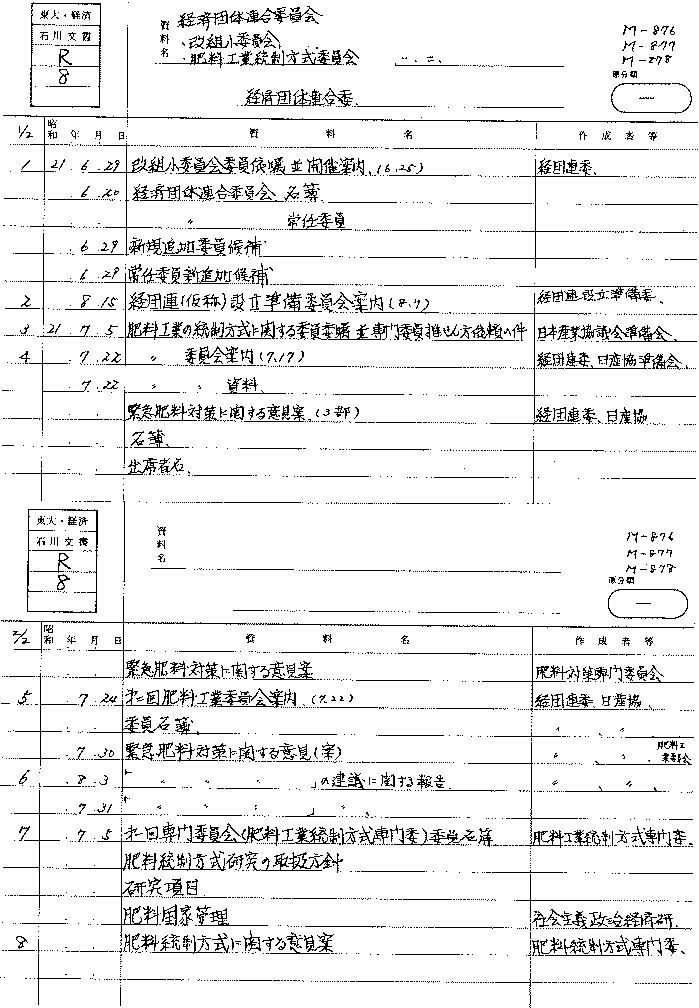 東大・経済
石川文書
R
8
資料名
経済団体連合委員会
・改組小委員会
・肥料工業統制方式委員会 一、二、
経済団体連合委、
M-876
M-877
M-878
原分類
一
1/2 昭和 年 月 日 資料名 作成者等
1 21 6 29 改組小委員会委員依嘱並開催案内、(6.25) 経団連委、
6 20 経済団体連合委員会 名簿、
〃 常任委員
6 29 新規追加委員候補
6 29 常任委員新追加候補
2 8 15 経団連(仮称)設立準備委員会案内(8.9) 経団連設立準備委、
3 21 7 5 肥料工業の統制方式に関する委員委嘱並専門委員推せん方依頼の件 日本産業協議会準備会、
4 7 22 〃 委員会案内(7.17) 経団連委、日産協準備会、
7 22 〃 〃 資料、
緊急肥料対策に関する意見案、(3部) 経団連委、日産協
名簿、
出席者名、
東大・経済
石川文書
R
8
資料名
M-876
M-877
M-878
原分類
一
2/2 昭和 年 月 日 資料名 作成者等
緊急肥料対策に関する意見案 肥料対策専門委員会
5 7 24 才二回肥料工業委員会案内、(7.22) 経団連委、日産協、
委員名簿、 〃 、 〃 、
7 30 緊急肥料対策に関する意見(案) 〃 、 〃 、 肥料工業委員会
6 8 3 「〃 〃 〃 」の建議に関する報告 〃 、 〃 、
7 31 「〃 〃 〃 」 〃 、
7 7 5 才一回専門委員会(肥料工業統制方式専門委)委員名簿 肥料工業統制方式専門委、
肥料統制方式研究の取扱方針
研究項目
肥料国家管理 社会主義政治経済研、
8 肥料統制方式に関する意見案 肥料統制方式専門委、